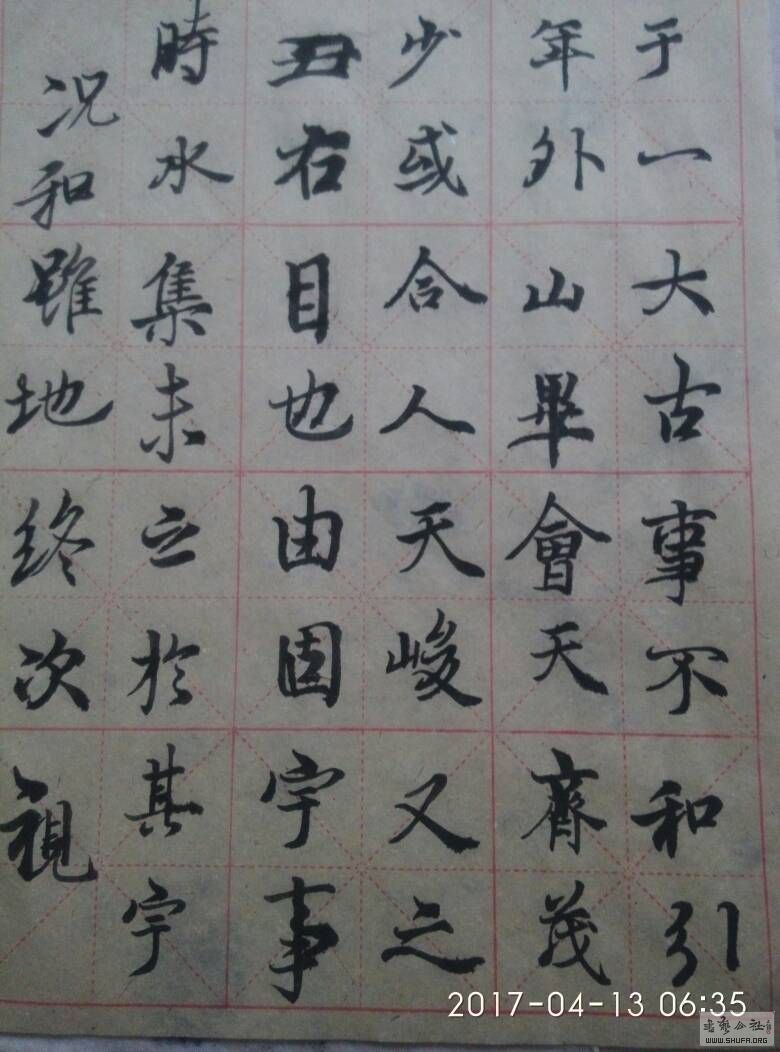 于一大古事不和引
年外山畢會天齊茂
少或合人天峻又之
丑右目也由固宇事
時水集未之於其宇
况和雖地終次視
2017-04-13 06:35
書藝公社
WWW.SHUFA.ORG